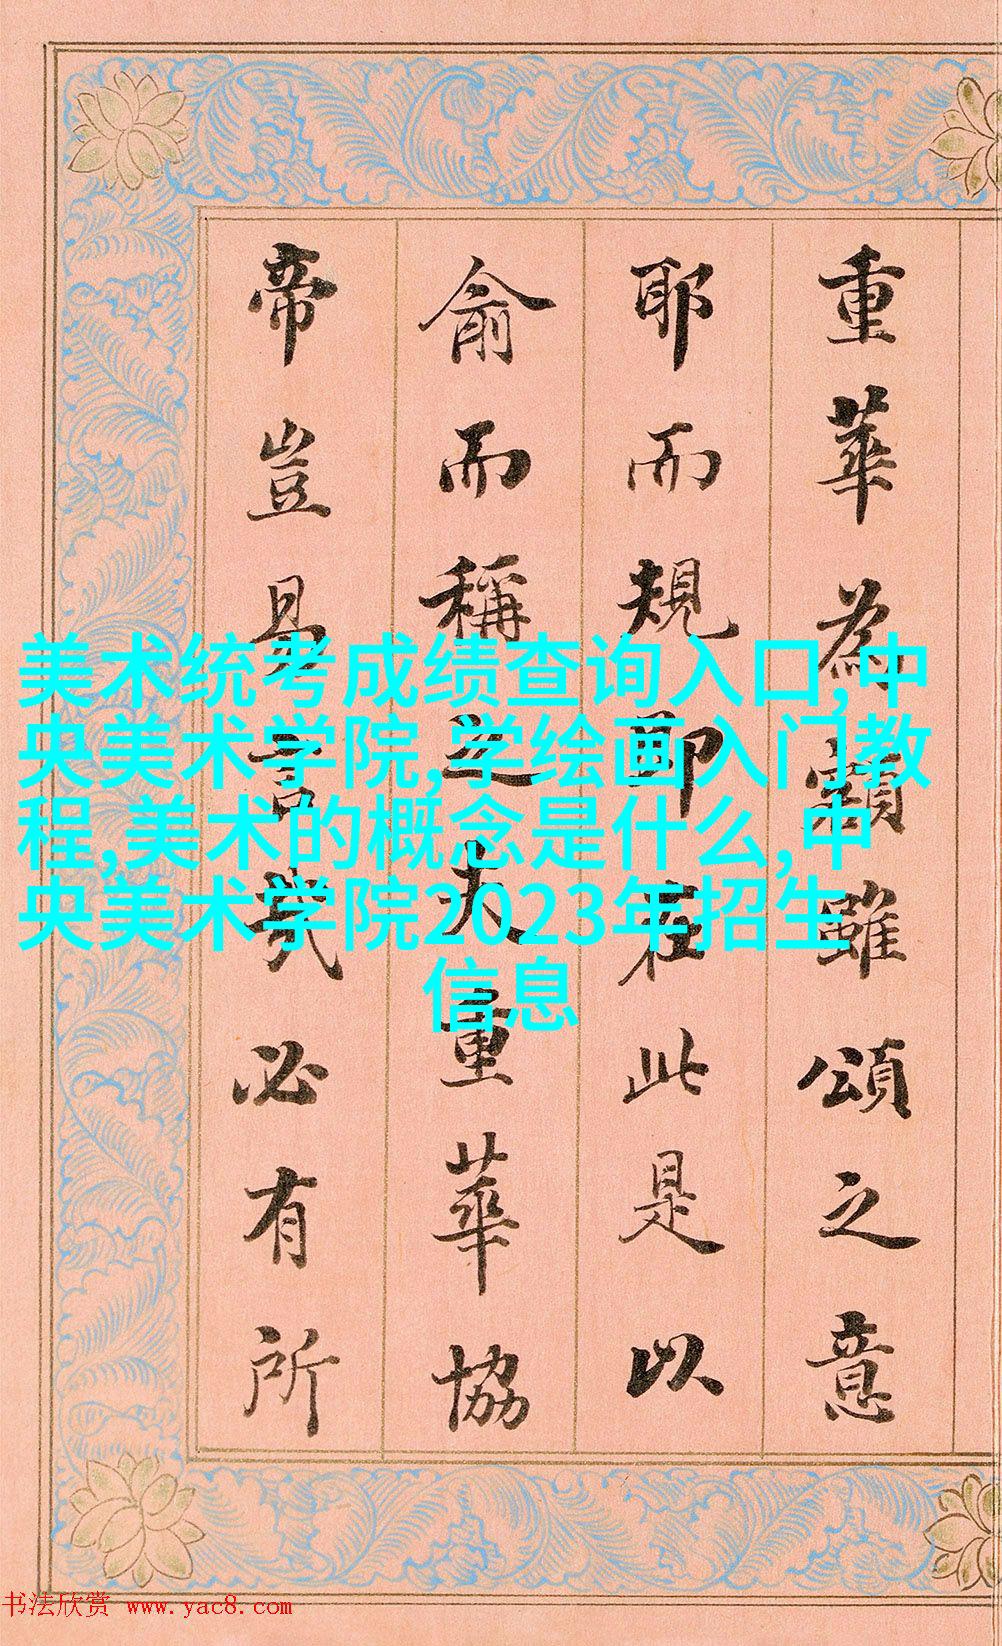 重華為雖頌之意
耶而規即在此是以
俞而稱之夫重華協
帝豈易言哉必有所
美术统考成绩查询入口,中
央美术学院,学绘画入门教
程,美术的概念是什么,中
央美术学院2023年招生
信息
书法欣赏 www.yac8.com